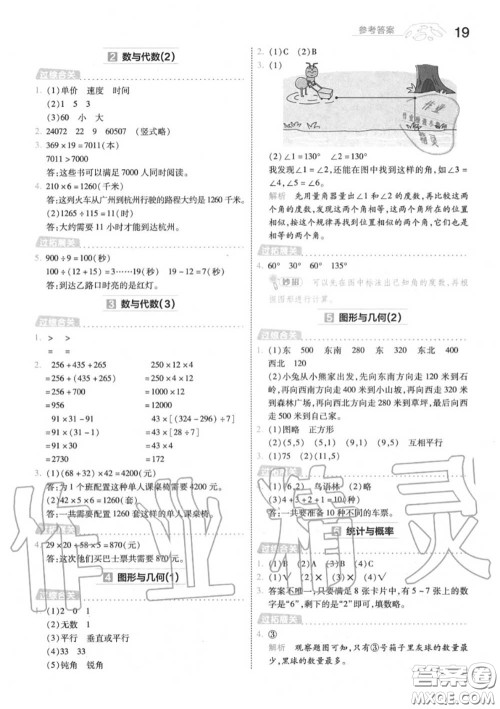 参考答案 19
2 数与代数(2)
过综合关
1. (1)单价 速度 时间
(2)1 5 3
(3)60 小 大
2. 24072 22 9 60507 (竖式略)
3. 369×19=7011(本)
7011>7000
答:这些书可以满足7000人同时阅读。
4. 210×6=1260(千米)
答:这列火车从广州到杭州行驶的路程大约是1260千米。
(2)1265÷115=11(时)
答:大约需要11小时才能达杭州。
过拓展关
5. 900÷9=100(秒)
100÷(12+15)=3……19(秒)
答:到达乙路口时亮的是红灯。
3 数与代数(3)
过综合关
1. > >
= =
2. 256+435+265 250×12×4
=256+(435+265) =250×4×12
=256+700 =1000×12
=956 =12000
91×31-91 43×[(324-296)÷7]
=91×(31-1) =43×[28÷7]
=91×30 =43×4
=2730 =172
3. (1)(68+32)×42=4200(元)
答:为1个班配置这样的单人课桌椅需要4200元。
(2)42×5×6=1260(套)
答:一共需要配置1260套这样的单人课桌椅。
过拓展关
4. 29×20+58×5=870(元)
答:这次他们买巴士票共需要870元。
4 图形与几何(1)
过综合关
1. (1)2 0 1
(2)无数 1
(3)平行 垂直或平行
(4)33 53
(5)钝角 锐角
2. (1)C (2)B
3. (1)
(2)∠1=130° ∠2=130°
我发现∠1=∠2,还能在图中找到这样的角,如∠3=
∠4,∠5=∠6。
解析 先用量角器量出∠1和∠2的度数,再比较这两
个角的度数,发现这两个角相等,这两个角所在的位置
相似,按这个规律再找到位置相似的角,它们也是
相等的两个角。
过拓展关
4. 60° 30° 45° 135°
妙招 可以先在图中标注出已知角的度数,再根
据图形进行计算。
5 图形与几何(2)
过综合关
1. (1)东 500 东南 280 东 320 东北 400
西北 120
(2)小兔从小熊家出发,先向东南方向走120米到石
岭,再向西南方向走400米到小山坡,再向西走320
米到森林广场,再向西北方向走280米到草坪,最后向
西走500米到电影院。
2. (1)略 正方形
(2)(5,5) (1,5) (9,5) 互相平行
过拓展关
3. (1)(6,2) 鸟语林 (2)略
4. (3)4+3+2+1=10(种)
答:一共要准备10种不同的车票。
6 统计与概率
过综合关
1. (1)B (2)A (3)B (4)C
2. (1)√ (2)× (3)× (4)√
3. 答案不唯一,如:摆放的8张卡片中,有5~7张上的数
字是“6”,剩下的是“2”即可,填数略。
过拓展关
4. ③
解析 观察题图可知,只有③号箱子里灰球的数量最
少,黑球的数量最多。
作业精灵
答案圈
MXQE.COM